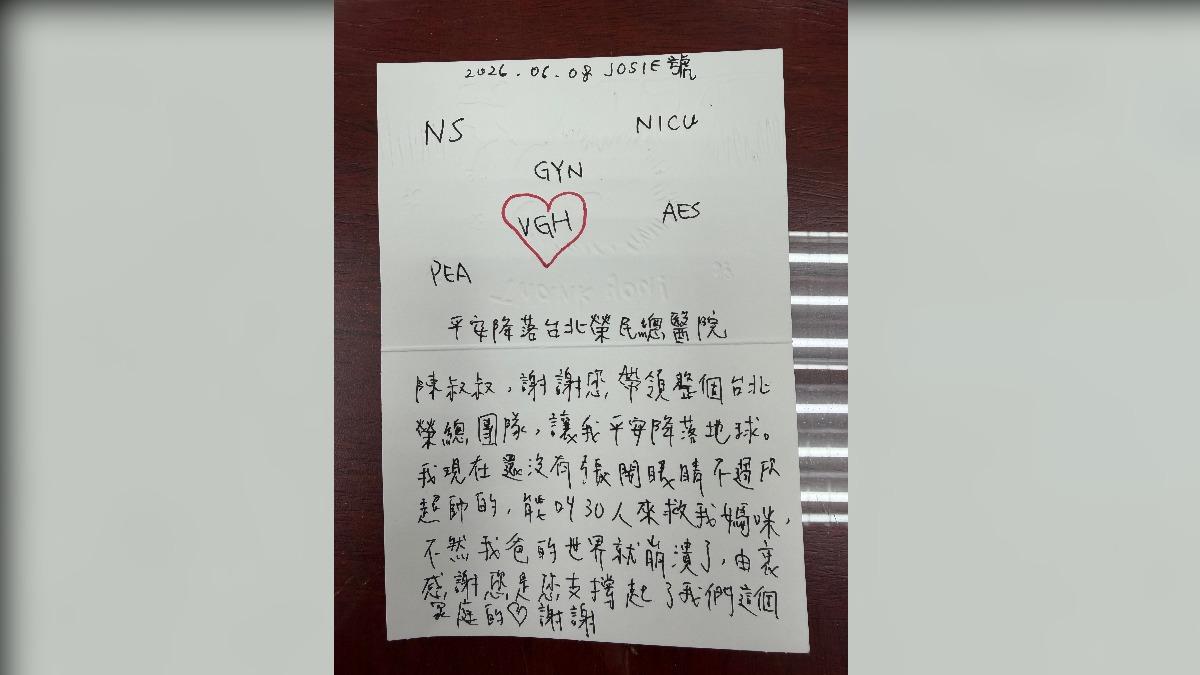 2026.06.08 JOSIE號
NS NICU
GYN
VGH AES
PEA
平安降落台北榮民總醫院
陳叔叔，謝謝您帶領整個台北
榮總團隊，讓我平安降落地球。
我現在還沒有張開眼睛不過
超帥的，能叫30人來救我媽咪，
不然我爸的世界就崩潰了，由衷
感謝您是您支撐起了我們這個
家庭的♡謝謝